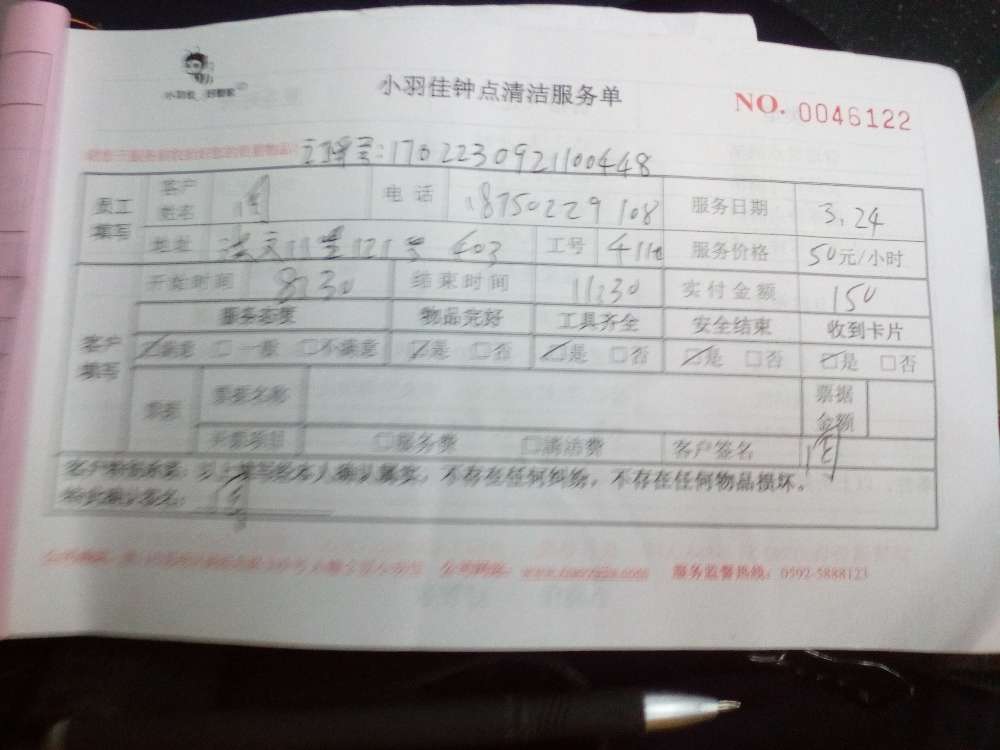 小羽佳钟点清洁服务单
NO. 0046122
订单号:1702230921100448
员工填写 客户姓名 电话 18750229108 服务日期 3.24
地址 403 工号 服务价格 50元/小时
开始时间 8:30 结束时间 11:30 实付金额 150
客户填写 服务态度 物品完好 工具齐全 安全结束 收到卡片
☑满意 □一般 □不满意 ☑是 □否 ☑是 □否 ☑是 □否 ☑是 □否
票据 票据名称 票据金额
开票项目 □服务费 □清洁费 客户签名
以上填写经本人确认属实,不存在任何纠纷,不存在任何物品损坏。
服务监督热线:0592-5888123